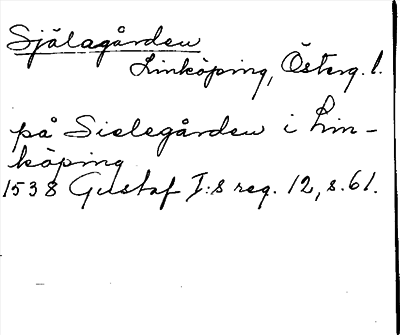 Själagården
Linköping, Österg. l.
på Sielegården i Lin-
köping
1538 Gustaf I:s reg. 12, s. 61.